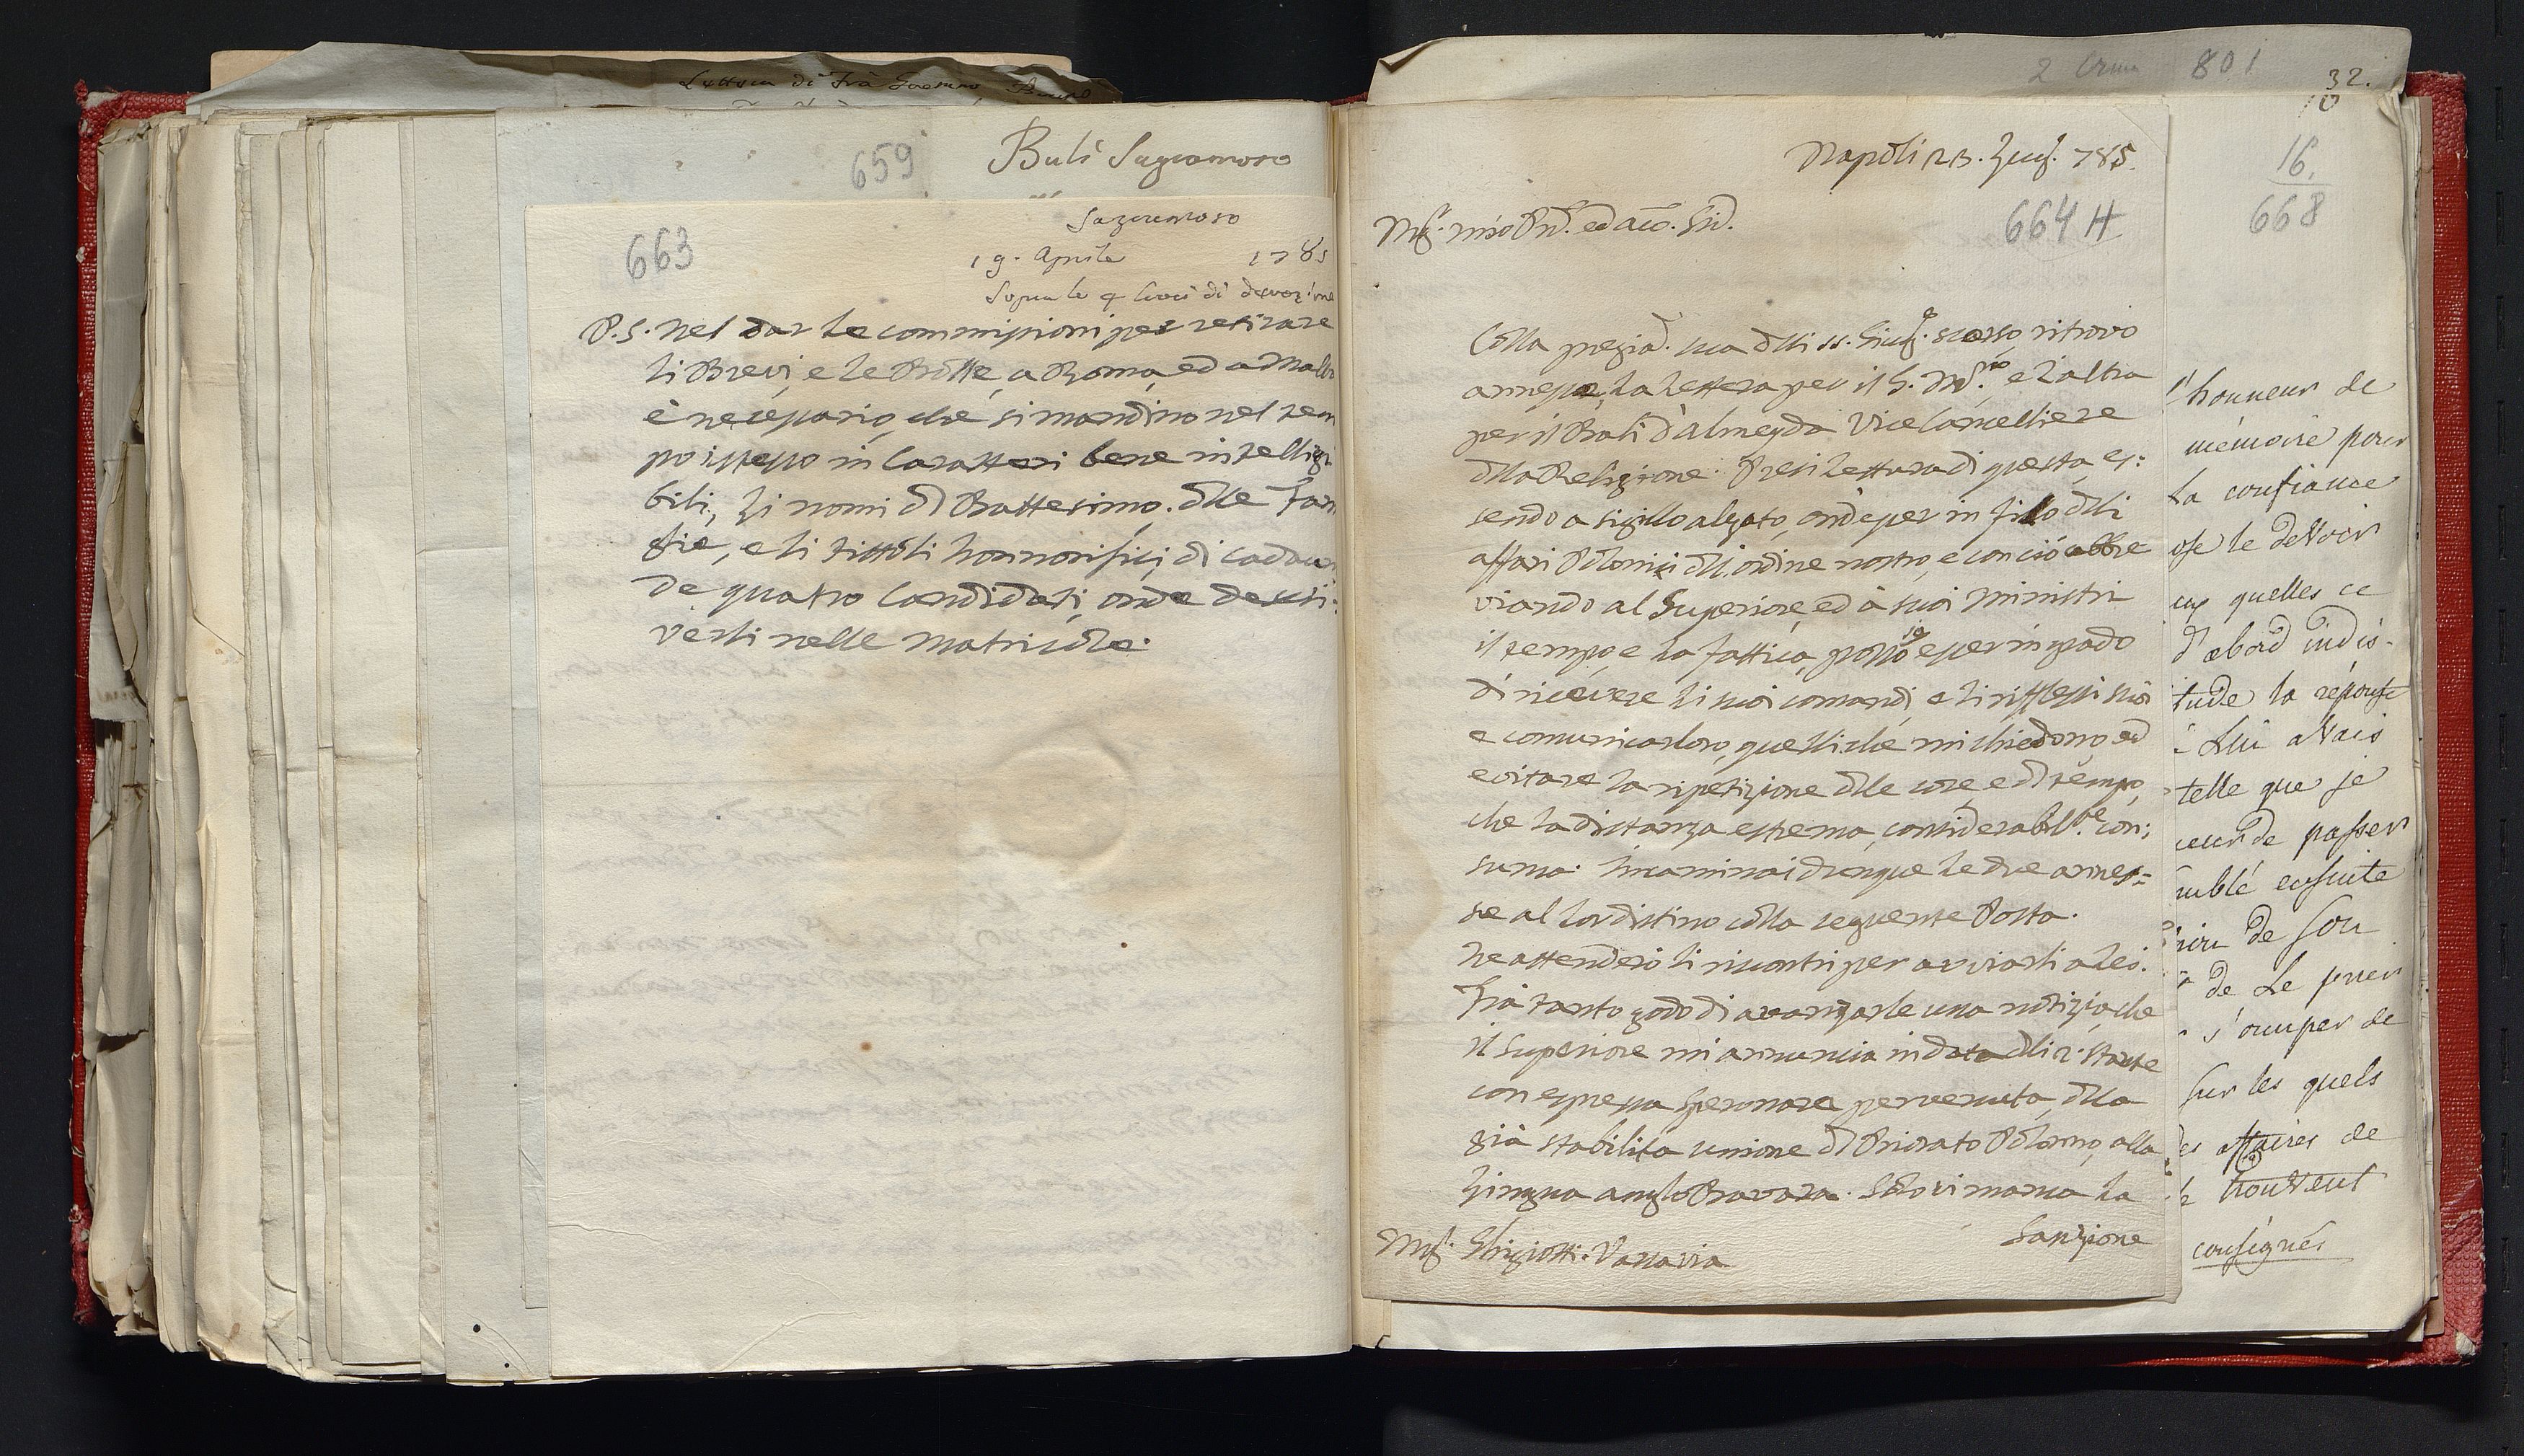 Lettera di Frà Gaetano Bruno
659
Balí Sagramoso
663
Sagramoso
19. Aprile 1785
Sopra le 4 Croci di devozione
P.S. Nel dar le commissioni per retirare
li Brevi, e le Bolle, a Roma, ed a Malta
è necessario, che si mandino nel tem
po istesso in Caratteri bene intelligi
bili, li nomi di Battesimo. dlle Fam
glie, e li tittoli honnorifici, di cadau
de quatro Candidati, onde descri:
verli nelle Matricole.
2 801
32.
10
16.
668
Napoli 23. Lug. 785.
664 H
Colla pregiad. sua dlli 11. Giug.o scorso ritrovo
annessa, la lettera per il G. M.ro e l'altra
per il Bali d'Almeyda Vice Cancelliere
dlla Religione. Presi lettura di questa, es:
sendo a sigillo alzato, ond'esser in filo dlli
affari Polonici dll'ordine nostro, e con ciò abbre
viando al Superiore, ed à suoi Ministri
il tempo, e la fattica, posso io esser in grado
di ricevere li suoi comandi, e li rifflessi suoi
e comunicarloro, quelli che mi chiedono, ed
evitare la ripetizione dlle cose, e di tempo,
che la distanza estrema, considerabil.te con:
suma. Incaminai dunque le due annes:
se al lor distino colla seguente Posta.
Ne attenderò li riscontri per avviarli a lei.
Frà tanto godo di avanzarle una notizia che
il Superiore mi annuncia in data dlli 2. stante
con espressa speronara pervenuta, dlla
già stabilita unione dl Priorato Polono, alla
Lingua anglo Bavara. Solo vi manca la
Sanzione
Msg. Ghigiotti. Varsavia
l'honneur de
mémoire pour
la confiance
ose le deVoir
quelles ce
d'abord indis-
tude la réponse
Lui aVais
telle que je
de passer
ensuite
de son
de Le prier
s'occuper de
sur les quels
affaires de
trouVent
consignés